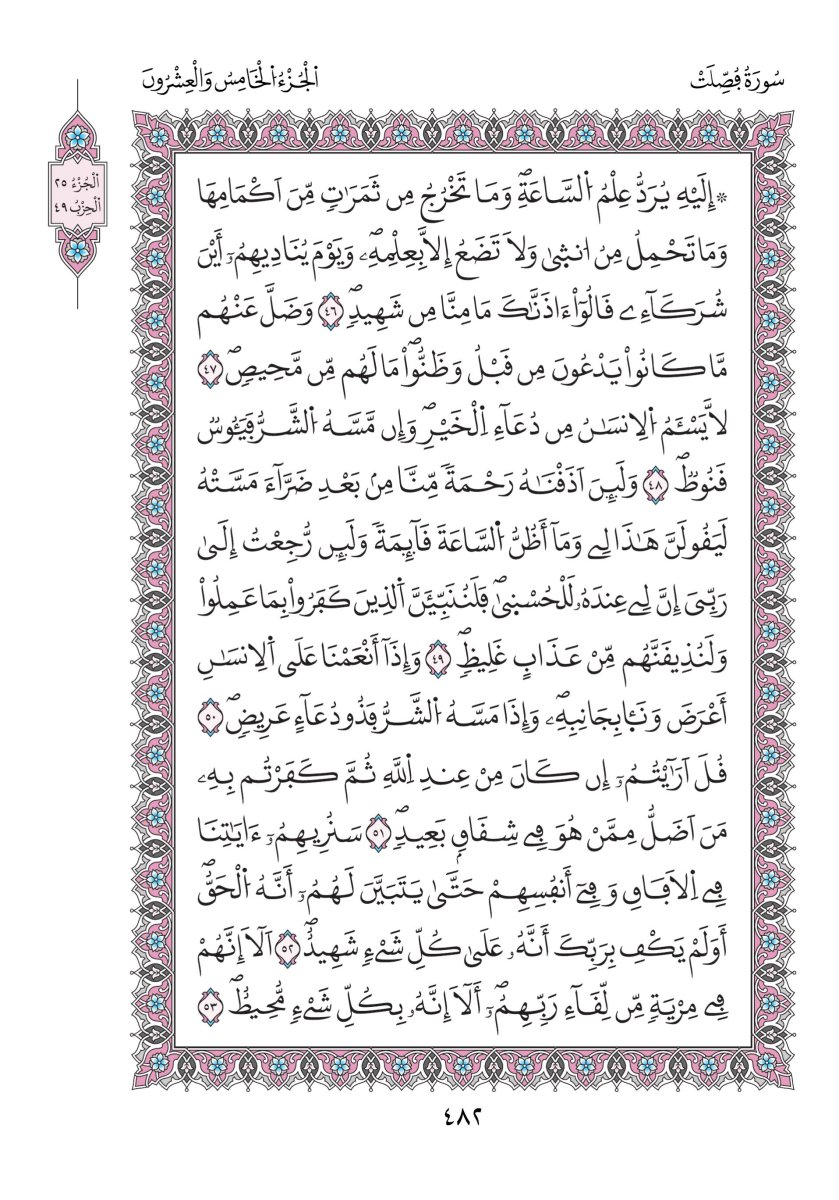 سُورَةُ فُصِّلَتْ
اَلْجُزْءُ اُلْخَامِسُ وَالْعِشْرُونَ
اَلْجُزْءُ ٢٥
اَلْحِزْبُ ٤٩
۞ إِلَيْهِ يُرَدُّ عِلْمُ اُ۬لسَّاعَةِۖ وَمَا تَخْرُجُ مِن ثَمَرَٰتٖ مِّنَ اَكْمَامِهَا
وَمَا تَحْمِلُ مِنُ ا۟نث۪يٰ وَلَا تَضَعُ إِلَّا بِعِلْمِهِۦۖ وَيَوْمَ يُنَادِيهِمُۥٓ أَيْنَ
شُرَكَآءِے قَالُوٓاْ ءَاذَنَّٰكَ مَا مِنَّا مِن شَهِيدٖۖ ٤٦ وَضَلَّ عَنْهُم
مَّا كَانُواْ يَدْعُونَ مِن قَبْلُ وَظَنُّواْۖ مَا لَهُم مِّن مَّحِيصٖۖ ٤٧
لَّا يَسْـَٔمُ اُ۬لِانسَٰنُ مِن دُعَآءِ اِ۬لْخَيْرِۖ وَإِن مَّسَّهُ اُ۬لشَّرُّ فَيَـُٔوسٞ
قَنُوطٞۖ ٤٨ وَلَئِنَ اَذَقْنَٰهُ رَحْمَةٗ مِّنَّا مِنۢ بَعْدِ ضَرَّآءَ مَسَّتْهُ
لَيَقُولَنَّ هَٰذَا لِے وَمَآ أَظُنُّ اُ۬لسَّاعَةَ قَآئِمَةٗ وَلَئِن رُّجِعْتُ إِلَىٰ
رَبِّيَ إِنَّ لِے عِندَهُۥ لَلْحُسْن۪يٰۖ فَلَنُنَبِّئَنَّ اَ۬لذِينَ كَفَرُواْ بِمَا عَمِلُواْ
وَلَنُذِيقَنَّهُم مِّنْ عَذَابٍ غَلِيظٖۖ ٤٩ وَإِذَآ أَنْعَمْنَا عَلَى اَ۬لِانسَٰنِ
أَعْرَضَ وَنَـَٔا بِجَانِبِهِۦۖ وَإِذَا مَسَّهُ اُ۬لشَّرُّ فَذُو دُعَآءٍ عَرِيضٖۖ ٥٠
قُلَ اَرَٰٓيْتُمُۥٓ إِن كَانَ مِنْ عِندِ اِ۬للَّهِ ثُمَّ كَفَرْتُم بِهِۦ
مَنَ اَضَلُّ مِمَّنْ هُوَ فِے شِقَاقِۢ بَعِيدٖۖ ٥١ سَنُرِيهِمُۥٓ ءَايَٰتِنَا
فِے اِ۬لَافَاقِ وَفِےٓ أَنفُسِهِمْ حَتَّىٰ يَتَبَيَّنَ لَهُمُۥٓ أَنَّهُ اُ۬لْحَقُّۖ
أَوَلَمْ يَكْفِ بِرَبِّكَ أَنَّهُۥ عَلَىٰ كُلِّ شَےْءٖ شَهِيدٌۖ ٥٢ اَلَآ إِنَّهُمْ
فِے مِرْيَةٖ مِّن لِّقَآءِ رَبِّهِمُۥٓۖ أَلَآ إِنَّهُۥ بِكُلِّ شَےْءٖ مُّحِيطٞۖ ٥٣
٤٨٢